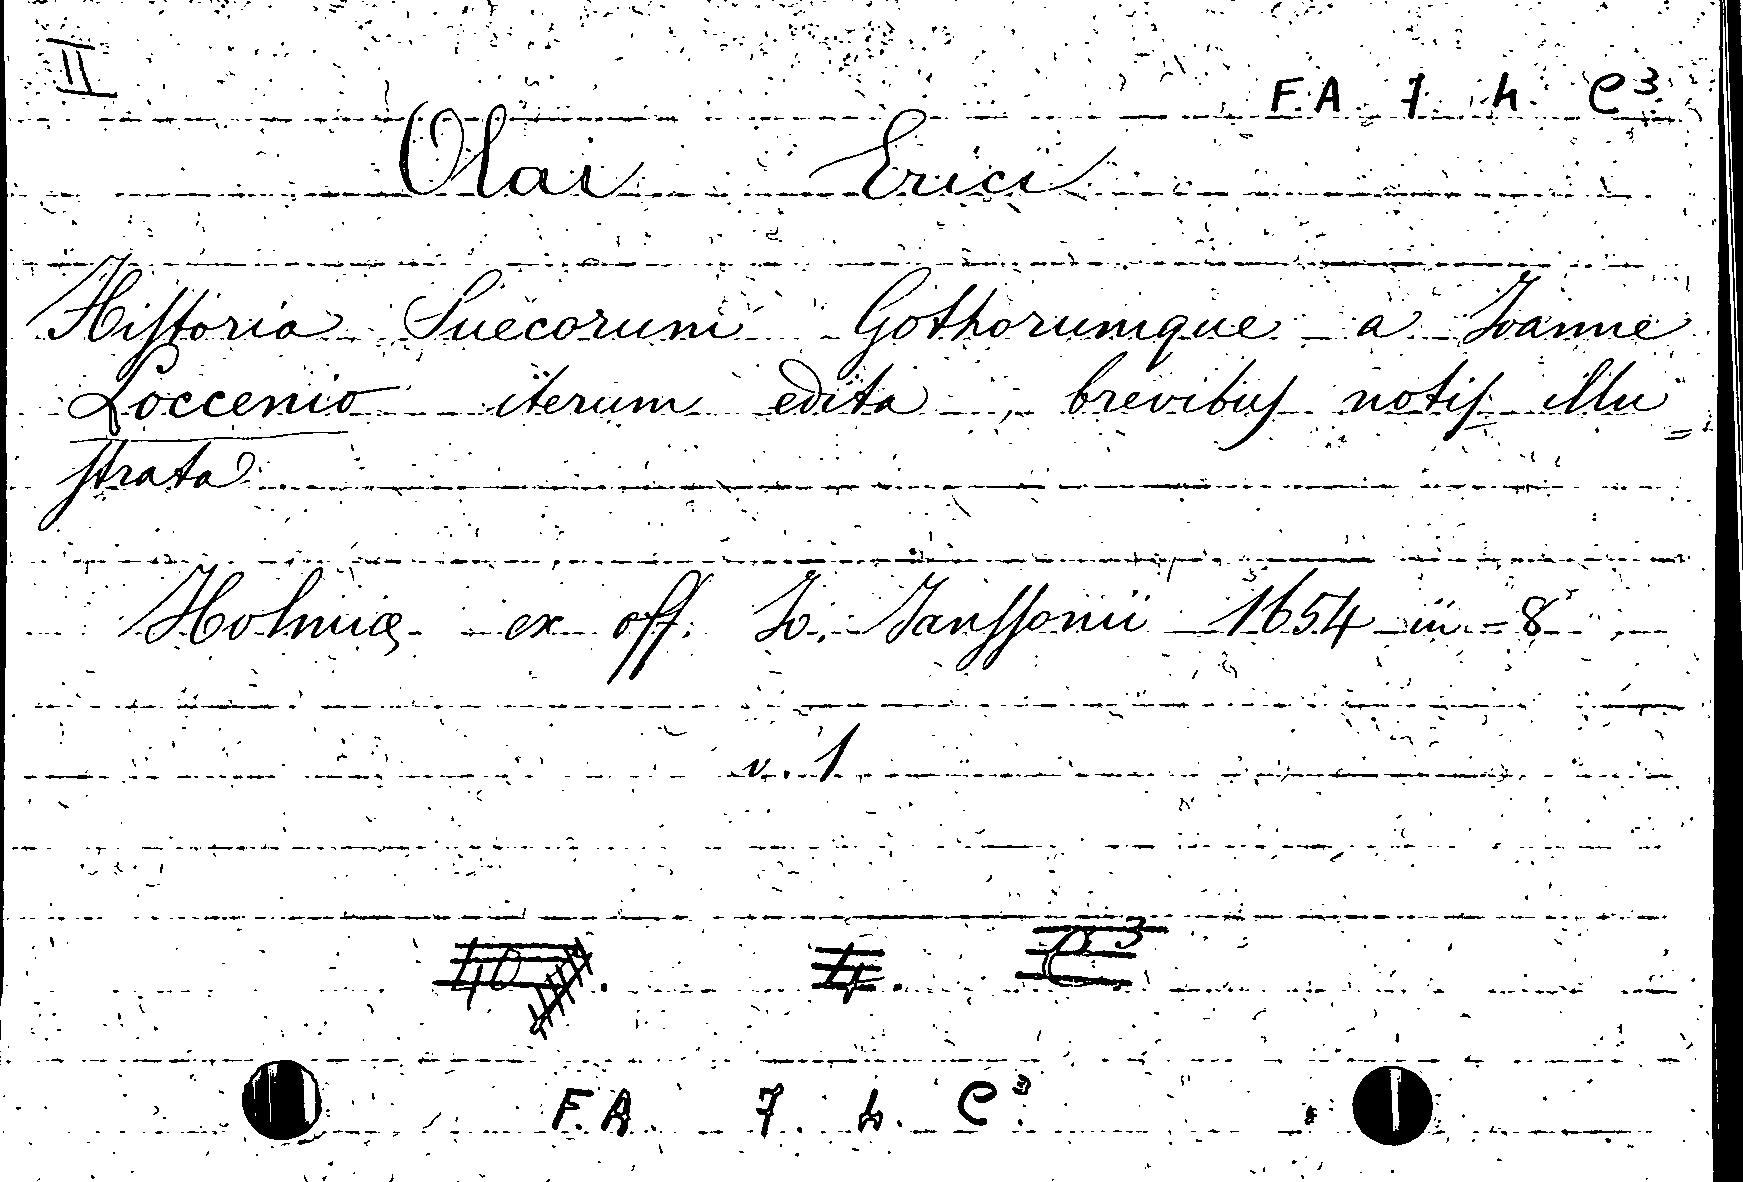 II
F.A 7. h. C³.
Olai Erici
Hiſtoria Suecorum Gothorumque a Ioanne
Loccenio iterum edita, brevibuſ notiſ illu=
ſtrata
Holmiæ ex off. Io. Janſſonii 1654 in-8
v. 1
4. C³
F.A 7. h. C³.